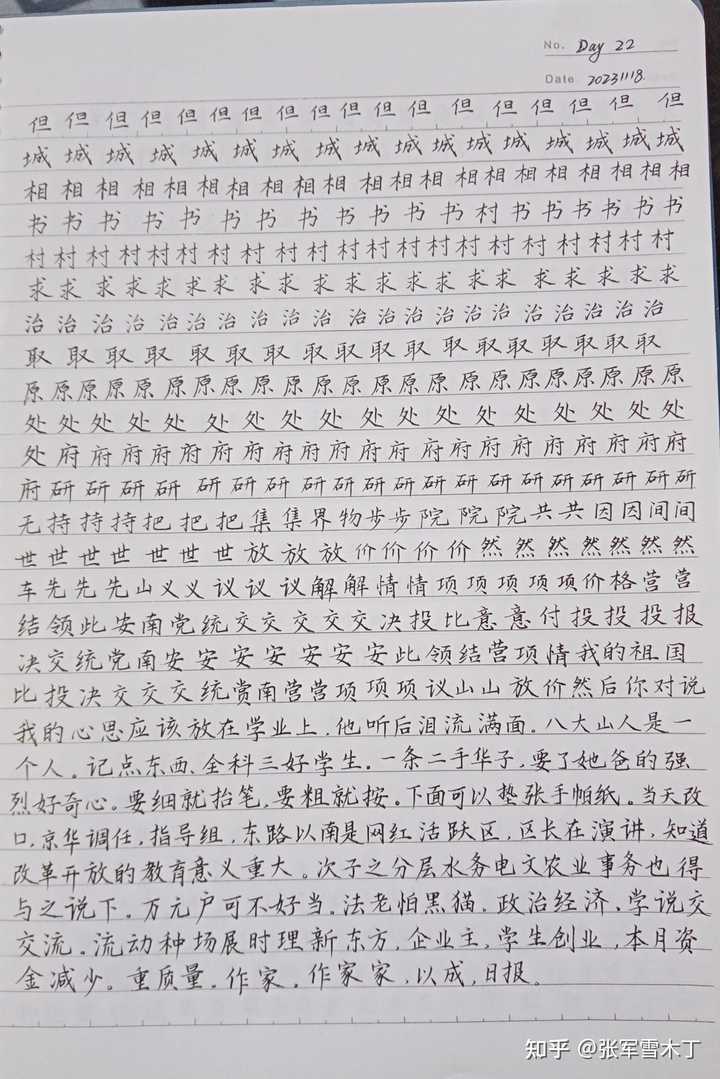 No. Day 22
Date 20231118
但 但 但 但 但 但 但 但 但 但 但 但 但 但 但 但 但 但
城 城 城 城 城 城 城 城 城 城 城 城 城 城 城 城 城
相 相 相 相 相 相 相 相 相 相 相 相 相 相 相 相 相 相 相 相 相
书 书 书 书 书 书 书 书 书 书 书 书 村 书 书 书 书 书 书
村 村 村 村 村 村 村 村 村 村 村 村 村 村 村 村 村 村 村 村 村
求 求 求 求 求 求 求 求 求 求 求 求 求 求 求 求 求 求 求 求
治 治 治 治 治 治 治 治 治 治 治 治 治 治 治 治 治 治 治 治
取 取 取 取 取 取 取 取 取 取 取 取 取 取 取 取 取 取
原 原 原 原 原 原 原 原 原 原 原 原 原 原 原 原 原 原 原 原 原 原
处 处 处 处 处 处 处 处 处 处 处 处 处 处 处 处 处
处 府 府 府 府 府 府 府 府 府 府 府 府 府 府 府 府 府 府 府 府 府
府 研 研 研 研 研 研 研 研 研 研 研 研 研 研 研 研 研 研 研
无 持 持 持 把 把 把 集 集 界 物 步 步 院 院 院 共 共 因 因 间 间
世 世 世 世 世 世 世 放 放 放 价 价 价 价 然 然 然 然 然 然 然
车 先 先 先 山 义 义 议 议 议 解 解 情 情 项 项 项 项 项 价 格 营 营
结 领 此 安 南 党 统 交 交 交 交 交 决 投 比 意 意 付 投 投 投 报
决 交 统 党 南 安 安 安 安 安 安 安 此 领 结 营 项 情 我 的 祖 国
比 投 决 交 交 交 统 赏 南 营 营 项 项 项 议 山 山 放 价 然 后 你 对 说
我的心思应该放在学业上，他听后泪流满面。八大山人是一
个人。记点东西、全科三好学生。一条二手华子，要了她爸的强
烈好奇心。要细就抬笔，要粗就按。下面可以垫张手帕纸。当天改
口，京华调任，指导组，东路以南是网红活跃区，区长在演讲，知道
改革开放的教育意义重大。次子之分层水务电文农业事务也得
与之说下。万元户可不好当。法老怕黑猫，政治经济，学说交
交流。流动种场展时理新东方，企业主，学生创业，本月资
金减少。重质量。作家。作家家，以成，日报。
知乎 @张军雪木丁